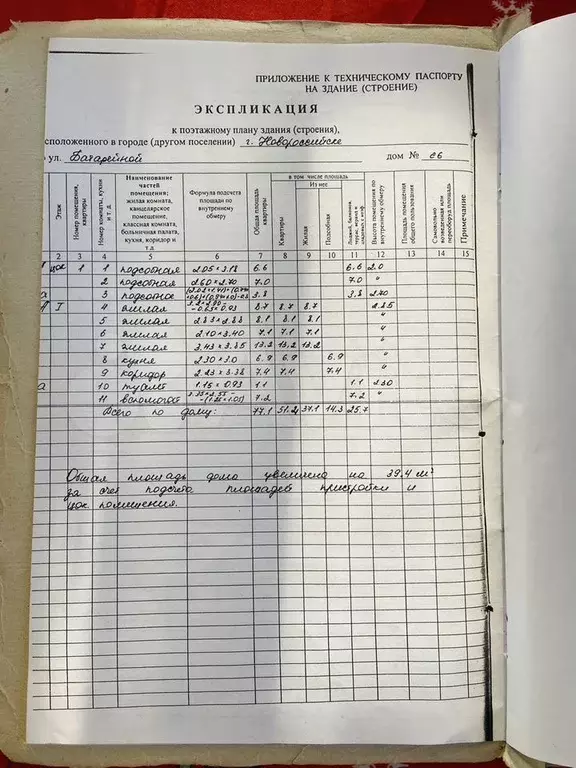 ПРИЛОЖЕНИЕ К ТЕХНИЧЕСКОМУ ПАСПОРТУ
НА ЗДАНИЕ (СТРОЕНИЕ)
ЭКСПЛИКАЦИЯ
к поэтажному плану здания (строения),
сположенного в городе (другом поселении) г. Новороссийске
ул. Батарейной дом №
Этаж
Номер помещения, квартиры
Номер комнаты, кухни и т.д.
Наименование частей помещения; жилая комната, канцелярское помещение, классная комната, больничная палата, кухня, коридор и т.д.
Формула подсчета площади по внутреннему обмеру
Общая площадь квартиры
в том числе площадь
Из нее
Квартиры
Жилая
Подсобная
Высота помещения по внутреннему обмеру
Площадь помещения общего пользования
Самовольно возведенная или переоборуд. площадь
Примечание
2 3 4 5 6 7 8 9 10 11 12 13 14 15
цок 1 1 подсобная 2.05×3.18 6.6 6.6 2.0
2 подсобная 2.60×2.70 7.0 7.0 "
3 подсобное 3.8 3.8 2.70
I 4 жилая 8.7 8.7 8.7 2.25
5 жилая 2.83×2.88 8.1 8.1 8.1 "
6 жилая 2.10×3.40 7.1 7.1 7.1 "
7 жилая 3.43×3.85 13.2 13.2 13.2 "
8 кухня 2.30×3.0 6.9 6.9 6.9 "
9 коридор 2.23×3.38 7.4 7.4 7.4 "
а 10 туалет 1.15×0.93 1.1 1.1 2.30
11 вспомогат 7.2 7.2 "
Всего по дому: 77.1 51.4 37.1 14.3 25.7
Общая площадь дома увеличена на 39.4 м²
за счет подсчета площадей пристройки и
цок. помещения.